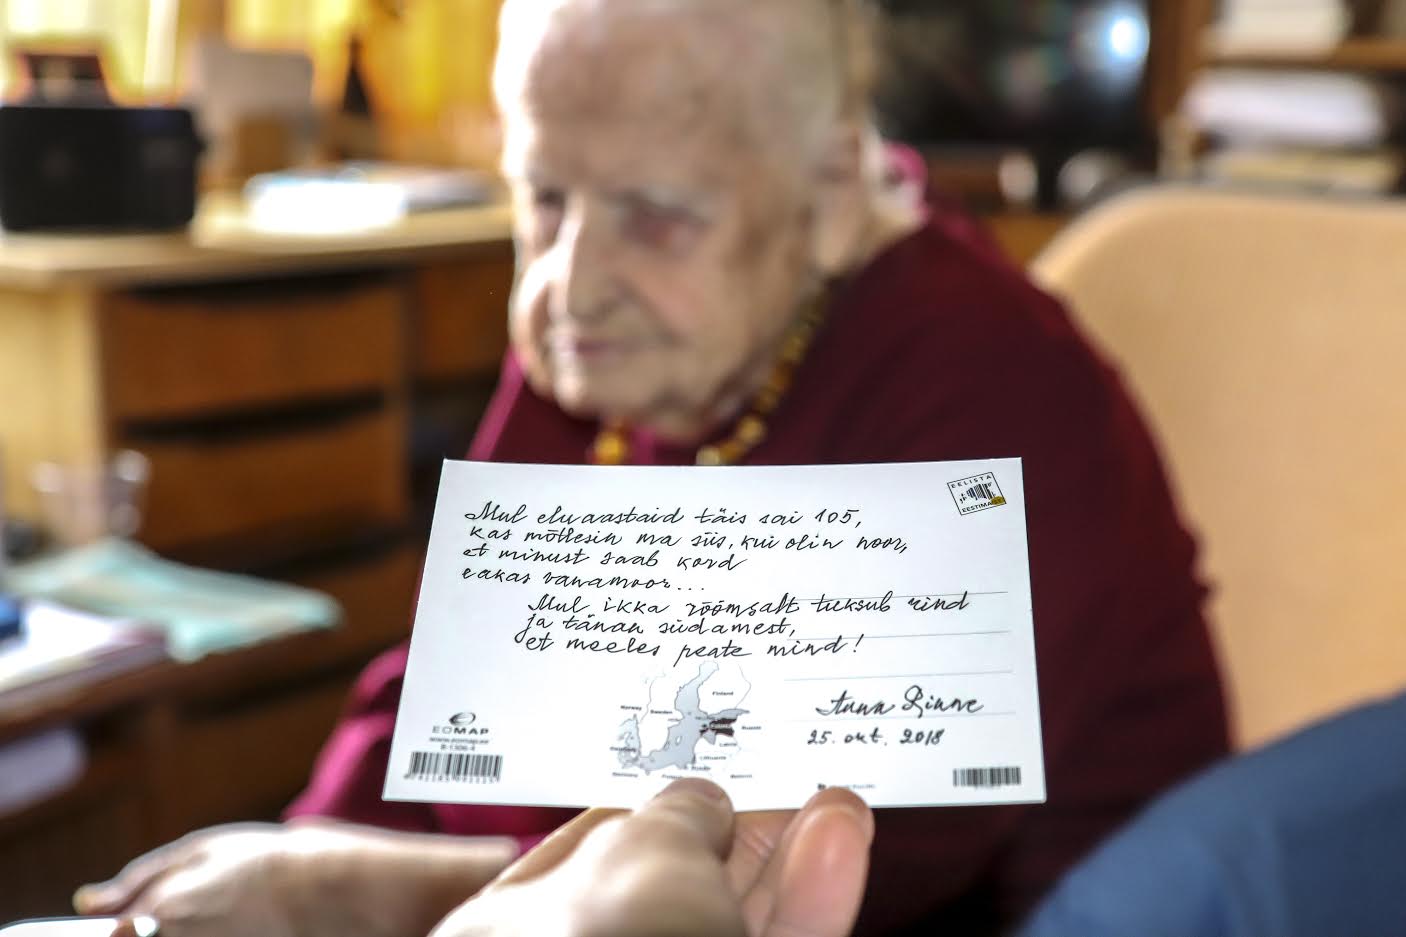 EELISTA
EESTIMAIST
Mul eluaastaid täis sai 105,
kas mõtlesin ma siis, kui olin noor,
et minust saab kord
eakas vanamoor...
Mul ikka rõõmsalt tuksub rind
ja tänan südamest,
et meeles peate mind!
Finland
Norway
Sweden
Russia
Latvia
Lithuania
EOMAP
www.eomap.ee
25. okt. 2018